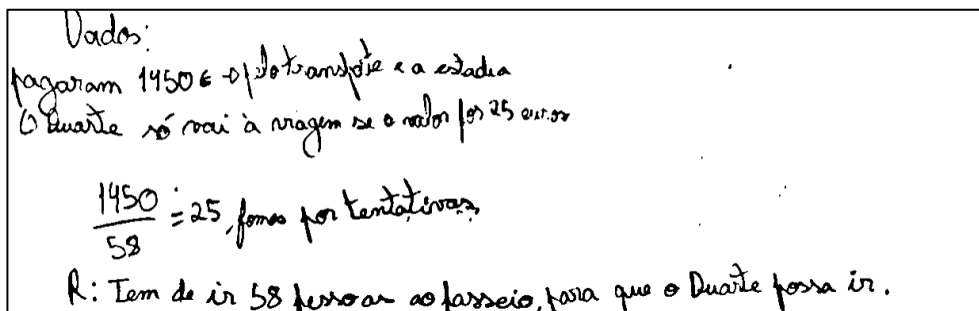 Dados:
pagaram 1450€ → pelo transporte e a estadia
O Duarte só vai à viagem se o valor for 25 euros
1450/58 = 25, fomos por tentativas
R: Tem de ir 58 pessoas ao passeio, para que o Duarte possa ir.